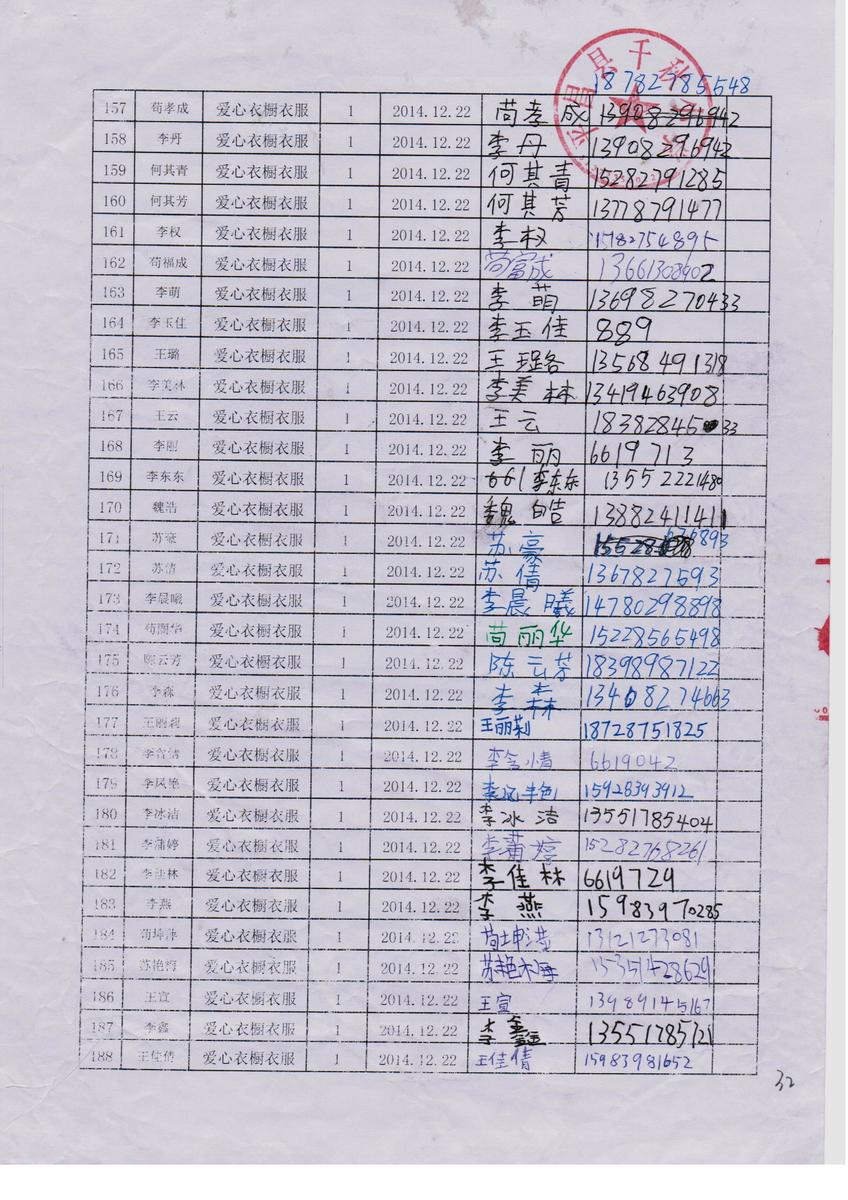 平昌县千秋
18782785548
157 苟孝成 爱心衣橱衣服 1 2014.12.22 苟孝成 13908296942
158 李丹 爱心衣橱衣服 1 2014.12.22 李丹 13908296942
159 何其青 爱心衣橱衣服 1 2014.12.22 何其青 15282791285
160 何其芳 爱心衣橱衣服 1 2014.12.22 何其芳 13778791477
161 李权 爱心衣橱衣服 1 2014.12.22 李权 15182754895
162 苟福成 爱心衣橱衣服 1 2014.12.22 苟富成 13661308902
163 李萌 爱心衣橱衣服 1 2014.12.22 李萌 13698270433
164 李玉佳 爱心衣橱衣服 1 2014.12.22 李玉佳 889
165 王璐 爱心衣橱衣服 1 2014.12.22 王璐 13568491318
166 李美林 爱心衣橱衣服 1 2014.12.22 李美林 13419463908
167 王云 爱心衣橱衣服 1 2014.12.22 王云 18382845 33
168 李丽 爱心衣橱衣服 1 2014.12.22 李丽 6619713
169 李东东 爱心衣橱衣服 1 2014.12.22 661李东东 13552221480
170 魏浩 爱心衣橱衣服 1 2014.12.22 魏皓 13882411411
171 苏豪 爱心衣橱衣服 1 2014.12.22 苏豪 15528 676893
172 苏倩 爱心衣橱衣服 1 2014.12.22 苏倩 1367827593
173 李晨曦 爱心衣橱衣服 1 2014.12.22 李晨曦 14780298898
174 苟丽华 爱心衣橱衣服 1 2014.12.22 苟丽华 15228565498
175 陈云芳 爱心衣橱衣服 1 2014.12.22 陈云芳 18398987122
176 李森 爱心衣橱衣服 1 2014.12.22 李森 13408274663
177 王丽莉 爱心衣橱衣服 1 2014.12.22 王丽莉 18728751825
178 爱心衣橱衣服 1 2014.12.22 李含情 6619042
179 李凤艳 爱心衣橱衣服 1 2014.12.22 李凤艳 15928393912
180 李冰洁 爱心衣橱衣服 1 2014.12.22 李冰洁 13551785404
181 李蒲婷 爱心衣橱衣服 1 2014.12.22 李蒲婷 15282768261
182 李佳林 爱心衣橱衣服 1 2014.12.22 李佳林 6619729
183 李燕 爱心衣橱衣服 1 2014.12.22 李燕 15983970285
184 苟坤萍 爱心衣橱衣服 1 2014.12.22 13121273081
185 苏艳梅 爱心衣橱衣服 1 2014.12.22 苏艳梅 15351428629
186 王宣 爱心衣橱衣服 1 2014.12.22 王宣 13989145167
187 李鑫 爱心衣橱衣服 1 2014.12.22 李鑫 13551785721
188 王佳倩 爱心衣橱衣服 1 2014.12.22 王佳倩 15983981652
32